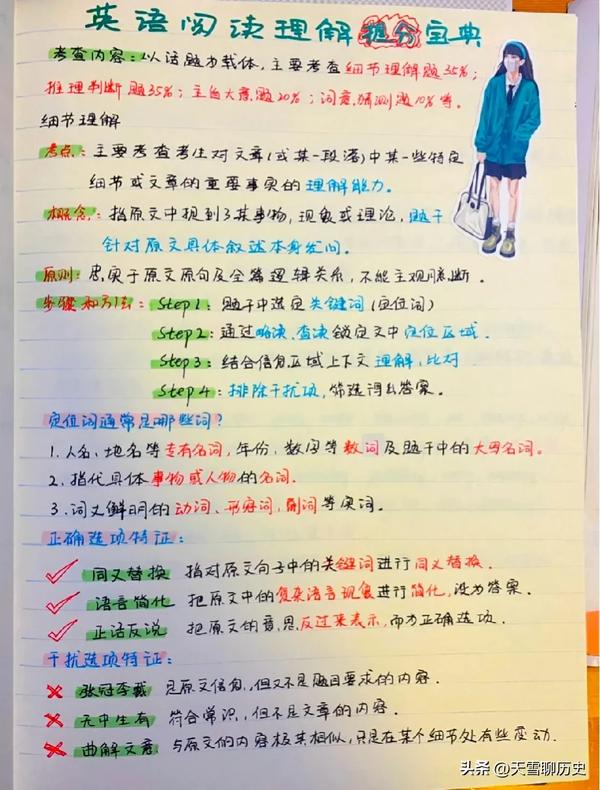 英语阅读理解提分宝典
考查内容：以话题为载体，主要考查细节理解题35%；
推理判断题35%；主旨大意题20%；词意猜测题10%等。
细节理解
考点：主要考查考生对文章（或某一段落）中某一些特定
细节或文章的重要事实的理解能力。
概念：指原文中提到了某事物，现象或理论，题干
针对原文具体叙述本身发问。
原则：忠实于原文原句及全篇逻辑关系，不能主观臆断。
步骤和方法：Step1：题干中选定关键词（定位词）
Step2：通过略读、查读锁定文中定位区域.
Step3：结合信息区域上下文理解，比对
Step4：排除干扰项，筛选得出答案。
定位词通常是哪些词？
1.人名、地名等专有名词，年份，数字等数词及题干中的大写名词。
2.指代具体事物或人物的名词.
3.词义鲜明的动词、形容词，副词等实词。
正确选项特征：
同义替换 指对原文句子中的关键词进行同义替换.
语言简化 把原文中的复杂语言现象进行简化，设为答案.
正话反说 把原文的意思反过来表示，而为正确选项.
干扰选项特征：
张冠李戴 是原文信息，但又不是题目要求的内容.
无中生有 符合常识，但不是文章的内容.
曲解文章 与原文的内容极其相似，只是在某个细节处有些变动.
头条@天雪聊历史